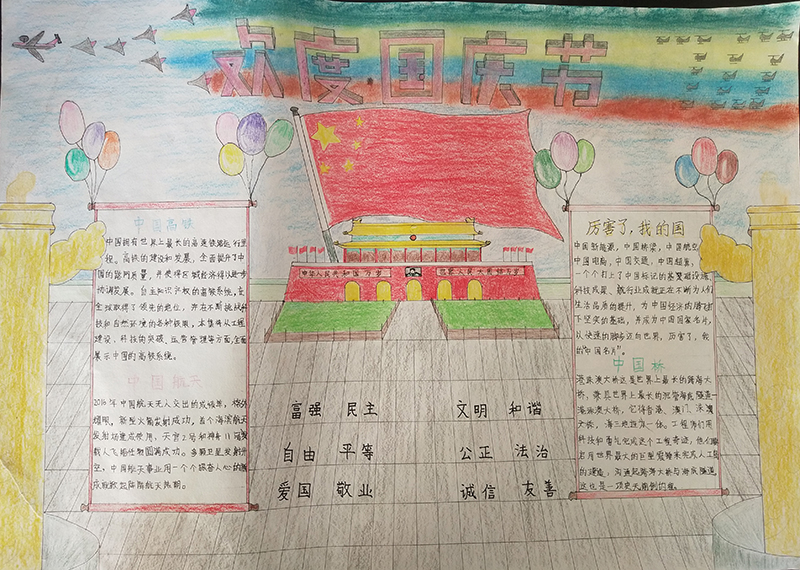 欢度国庆节
中国高铁
中国拥有世界上最长的高速铁路运行里
程。高铁的建设和发展,全面提升了中
国的路网质量,并使得区域经济得以进步
协调发展。自主知识产权的高铁系统,在
全球取得了领先的地位,并在不断挑战科
技和自然环境的各种极限,本集将从工程
建设、科技的突破、运营管理等方面,全面
展示中国的高铁系统。
中国航天
2016年中国航天无人交出的成绩单,格外
耀眼,新型火箭发射成功,首个海滨航天
发射场建成使用,天宫二号和神舟11号
载人飞船任务圆满成功。多颗卫星发射升
空,中国航天事业用一个个振奋人心的
成就掀起
航天热潮。
中华人民共和国万岁
世界人民大团结万岁
富强 民主
文明 和谐
自由 平等
公正 法治
爱国 敬业
诚信 友善
厉害了,我的国
中国新能源,中国桥梁,中国航空,
中国电商,中国交通,中国超算,
一个个打上了中国标记的基建
科技成果、航行业成就正在不断为人们
生活品质的提升,为中国经济的腾飞打
下坚实的基础,并成为中国国家名片,
以快速的脚步迈向世界,厉害了,我
的"中国名片"。
中国桥
港珠澳大桥这是世界上最长的跨海大
桥,
港珠澳大桥,它将香港、澳门、珠
三地连为一体。工程师们用
科技和勇气完成这个工程奇迹,他们
启用世界最大的巨型震锤来完成人工岛
的建造,沟通起跨海大桥与海底隧道
这也是一项史无前例的